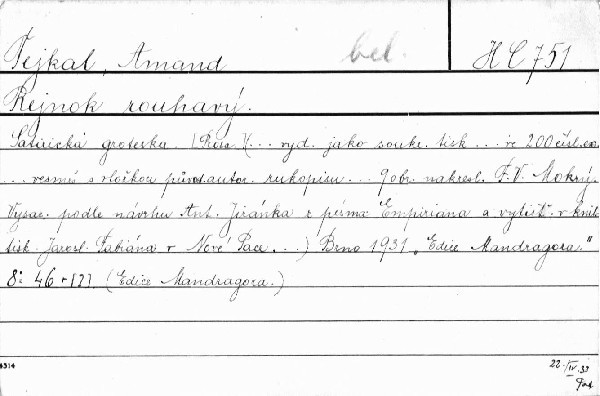 Fejkal, Amand bel. HC 751
Rejnok rouhavý.
Satirická groteska. (... vyd. jako soukr. tisk ... ve 200 čísl. ex.
... vesměs s vložkou původ. autor. rukopisu ... 9 obr. nakresl. F. V. Mokrý.
Vysáz. podle návrhu Ant. Jiránka z písma Empiriana a vytišť. v knih-
tisk. Jarosl. Fabiána v Nové Pace ...) Brno 1931 „Edice Mandragora."
8° 46 + [2] (Edice Mandragora.)
22. IV. 33